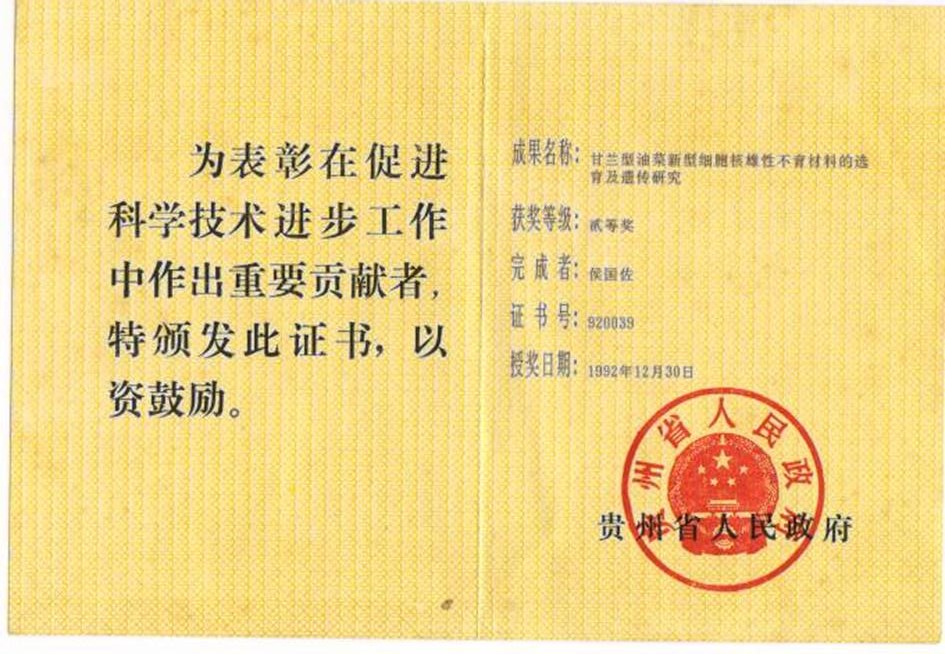 为表彰在促进
科学技术进步工作
中作出重要贡献者,
特颁发此证书, 以
资鼓励。
成果名称: 甘兰型油菜新型细胞核雄性不育材料的选
育及遗传研究
获奖等级: 贰等奖
完成者: 侯国佐
证书号: 920039
授奖日期: 1992年12月30日
贵州省人民政府
贵州省人民政府